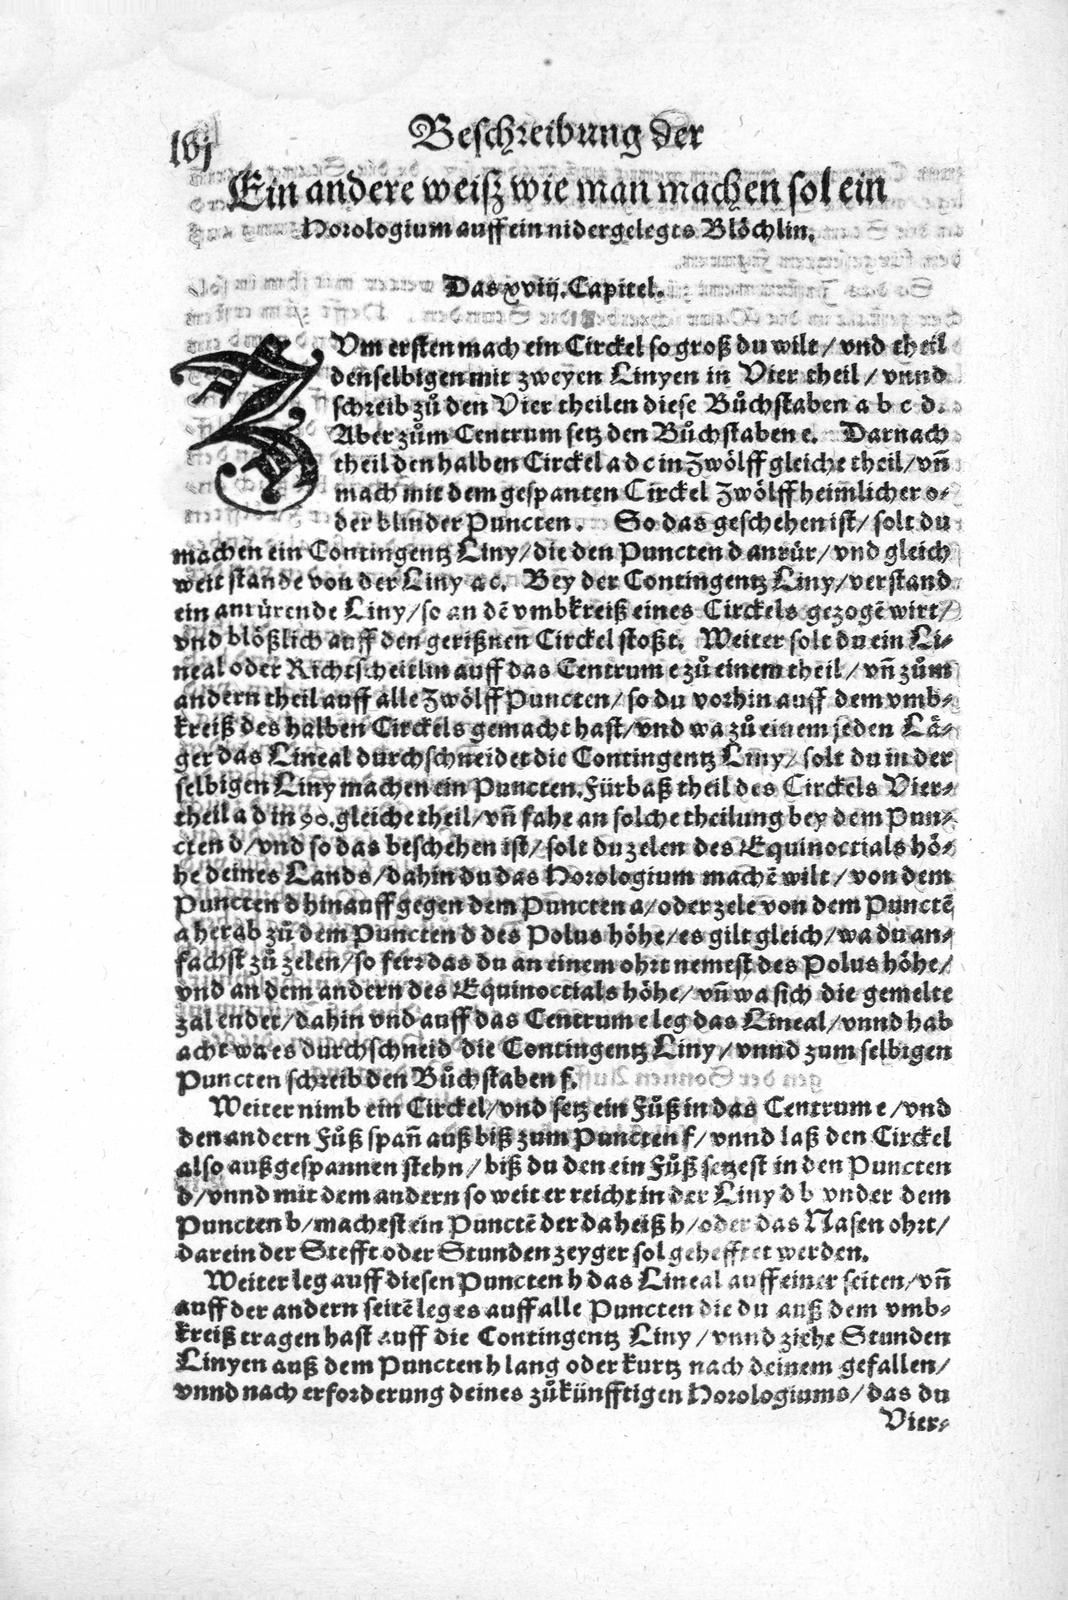 lvj
Beschreibung der
Ein andere weiß wie man machen sol ein
Horologium auff ein nidergelegts Blöchlin.
Das xviij. Capitel.
ZVm ersten mach ein Circkel so groß du wilt / vnd theil
denselbigen mit zweyen Linyen in Vier theil / vnnd
schreib zů den Vier theilen diese Bůchstaben a b c d.
Aber zům Centrum setz den Bůchstaben e. Darnach
theil den halben Circkel a d c in Zwölff gleiche theil / vñ
mach mit dem gespanten Circkel Zwölff heimlicher o-
der blinder Puncten. So das geschehen ist / solt du
machen ein Contingentz Liny / die den Puncten d anrür / vnd gleich
weit stande von der Liny ac. Bey der Contingentz Liny / verstand
ein anrürende Liny / so an dē vmbkreiß eines Circkels gezogē wirt /
vnd blößlich auff den gerißnen Circkel stoßt. Weiter solt du ein Li-
neal oder Richtscheitlin auff das Centrum e zů einem theil / vñ zům
andern theil auff alle Zwölff Puncten / so du vorhin auff dem vmb-
kreiß des halben Circkels gemacht hast / vnd wa zů einem jeden Lä-
ger das Lineal durchschneidet die Contingentz Liny / solt du in der
selbigen Liny machen ein Puncten. Fürbaß theil des Circkels Vier-
theil a d in 90. gleiche theil / vñ fahe an solche theilung bey dem Pun-
cten d / vnd so das beschehen ist / solt du zelen des Equinoctials hö-
he deines Lands / dahin du das Horologium machē wilt / von dem
Puncten d hinauff gegen dem Puncten a / oder zele von dem Punctē
a herab zů dem Puncten d des Polus höhe / es gilt gleich / wa du an-
fachst zů zelen / so ferr das du an einem ohrt nemest des Polus höhe /
vnd an dem andern des Equinoctials höhe / vñ wa sich die gemelte
zal endet / dahin vnd auff das Centrum e leg das Lineal / vnnd hab
acht wa es durchschneid die Contingentz Liny / vnnd zum selbigen
Puncten schreib den Bůchstaben f.
Weiter nimb ein Circkel / vnd setz ein Fůß in das Centrum e / vnd
den andern Fůß spañ auß biß zum Puncten f / vnnd laß den Circkel
also außgespannen stehn / biß du den ein Fůß setzest in den Puncten
d / vnnd mit dem andern so weit er reicht in der Liny d b vnder dem
Puncten b / machest ein Punctē der da heiß h / oder das Nasen ohrt /
darein der Stefft oder Stunden zeyger sol gehefftet werden.
Weiter leg auff diesen Puncten h das Lineal auff einer seiten / vñ
auff der andern seitē leg es auff alle Puncten die du auß dem vmb-
kreiß tragen hast auff die Contingentz Liny / vnnd ziehe Stunden
Linyen auß dem Puncten h lang oder kurtz nach deinem gefallen /
vnnd nach erforderung deines zůkünfftigen Horologiums / das du
Vier-